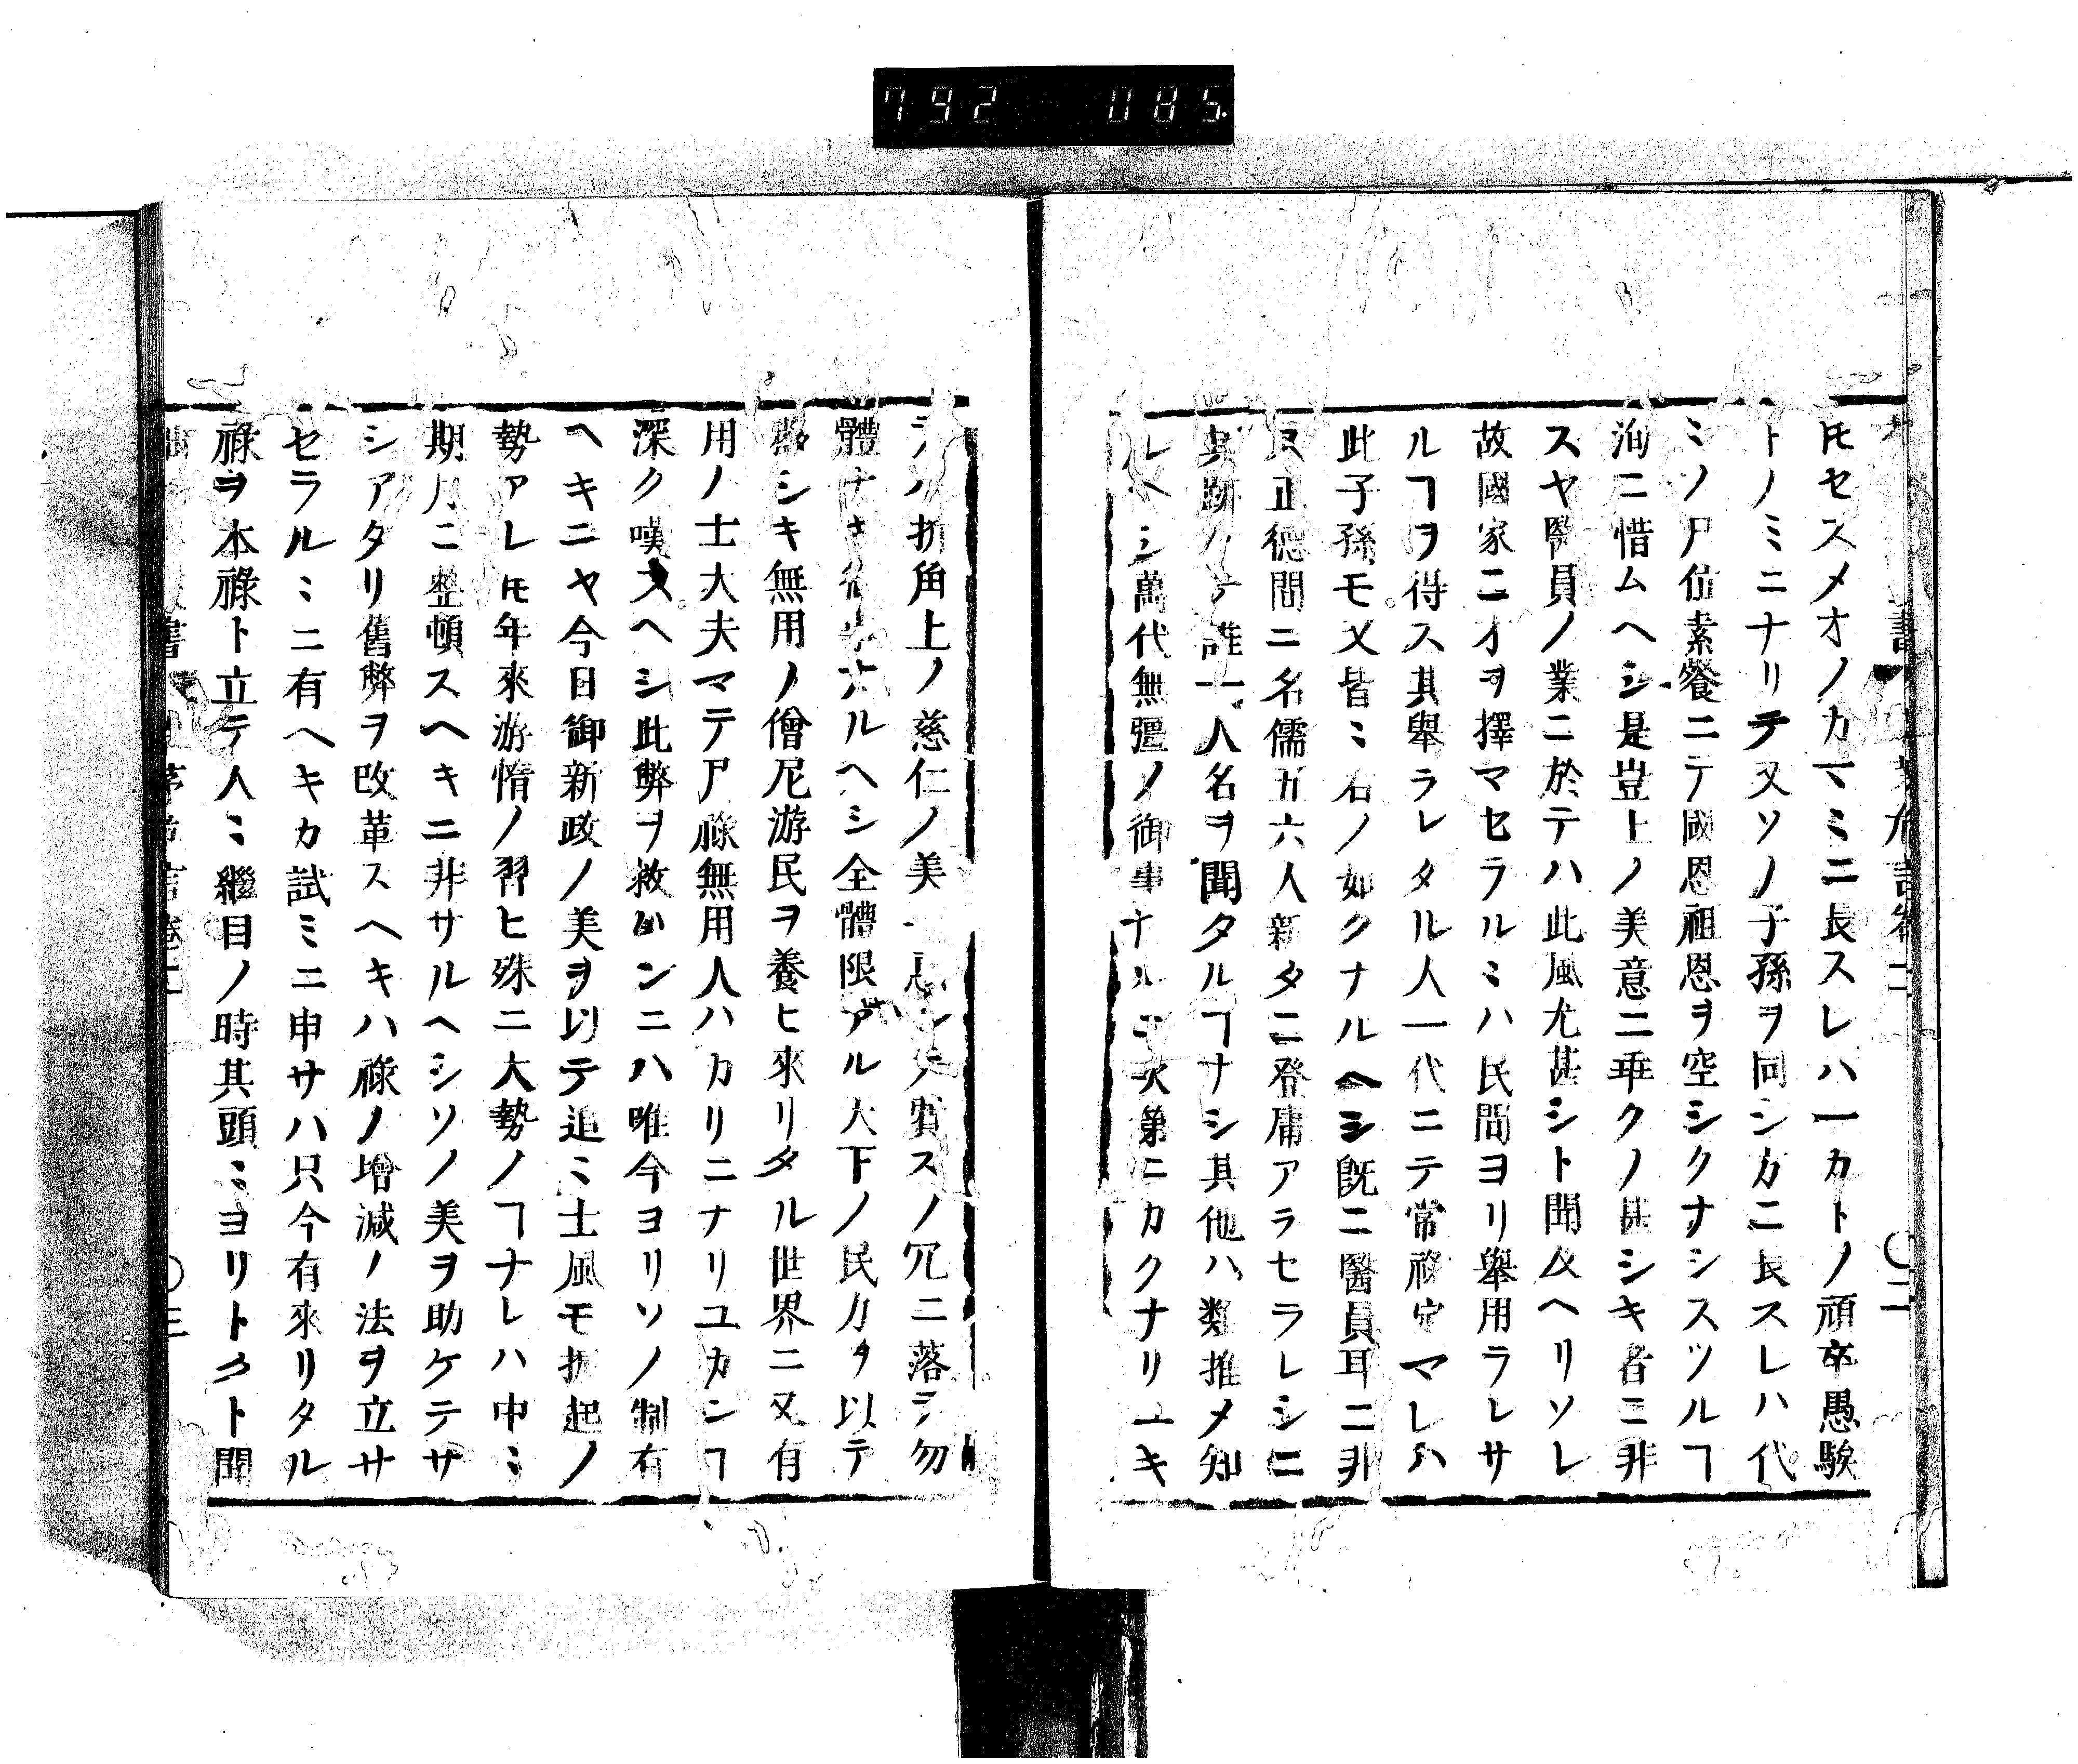 792 085
𪜈セスメオノカマミニ長スレハ一カトノ頑卒愚騃
トノミニナリテ又ソノ子孫ヲ同シカニ長スレハ代
ミソノ尸位素餐ニテ國恩祖恩ヲ空シクナシスツルヿ
洵ニ惜ムヘシ是豈上ノ美意ニ乖クノ甚シキ者ニ非
スヤ醫員ノ業ニ於テハ此風尤甚シト聞及ヘリソレ
故國家ニオヲ擇マセラルミハ民間ヨリ舉用ラレサ
ルヿヲ得ス其舉ラレタル人一代ニテ常祿定マレハ
此子孫モ又皆ミ右ノ如クナルヘシ既ニ醫員耳ニ非
又正德間ニ名儒五六人新タニ登庸アラセラレシニ
其跡ノテ誰一人名ヲ聞タルヿナシ其他ハ類推メ知
ルヘシ萬代無疆ノ御事ナルニ次第ニカクナリユキ
ハ折角上ノ慈仁ノ美スノ冗ニ落テ勿
體ナキルヘシ全體限アル天下ノ民力ヲ以テ
夥シキ無用ノ僧尼游民ヲ養ヒ來リタル世界ニ又有
用ノ士大夫マテ尸祿無用人ハカリニナリユカンヿ
深ク嘆スヘシ此弊ヲ救ハンニハ唯今ヨリソノ制有
ヘキニヤ今日御新政ノ美ヲ以テ追ミ士風モ振起ノ
勢アレ𪜈年來游惰ノ習ヒ殊ニ大勢ノヿナレハ中ミ
期月ニ整頓スヘキニ非サルヘシソノ美ヲ助ケテサ
シアタリ舊弊ヲ改革スヘキハ祿ノ增減ノ法ヲ立サ
セラルミニ有ヘキカ試ミニ申サハ只今有來リタル
祿ヲ本祿ト立テ人ミ繼目ノ時其頭ミヨリトクト聞